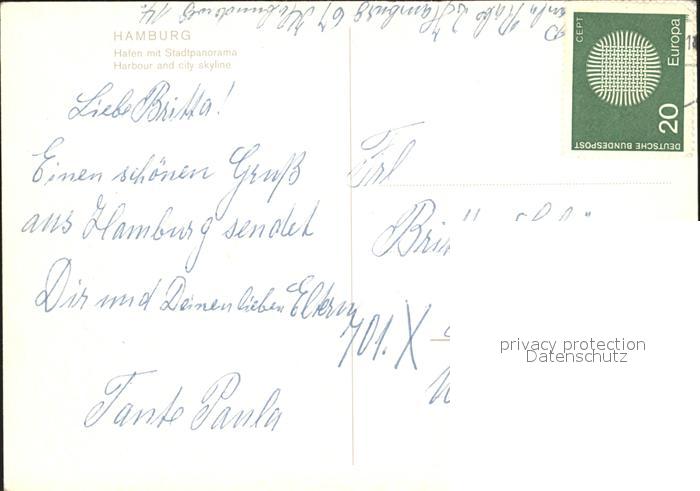 HAMBURG
Hafen mit Stadtpanorama
Harbour and city skyline
Liebe Britta!
Einen schönen Gruß
aus Hamburg sendet
Dir und Deinen lieben Eltern
Tante Paula
2 Hamburg 67
CEPT
Europa
20
DEUTSCHE BUNDESPOST
Frl
701. X
privacy protection
Datenschutz